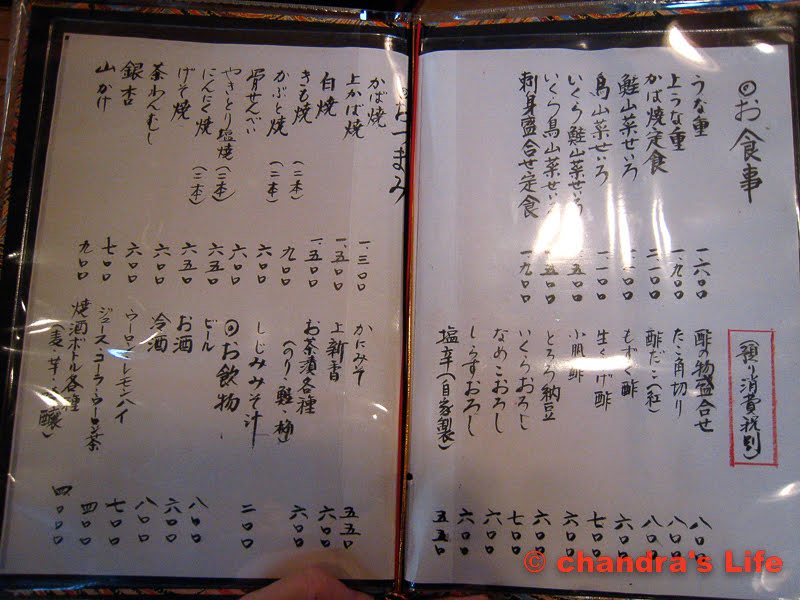 お食事
うな重 一、六〇〇
上うな重 一、九〇〇
かば焼定食 二、一〇〇
鮭山菜せいろ 一、一〇〇
鳥山菜せいろ 一、一〇〇
いくら鮭山菜せいろ 一、五〇〇
いくら鳥山菜せいろ 一、五〇〇
刺身盛合せ定食 一、九〇〇
(預り消費税別)
酢の物盛合せ 八〇〇
たこ角切り 八〇〇
酢だこ(紅) 八〇〇
もずく酢 六〇〇
生くらげ酢 七〇〇
小肌酢 六〇〇
とろろ納豆 六〇〇
いくらおろし 七〇〇
なめこおろし 六〇〇
しらすおろし 六〇〇
塩辛(自家製) 五五〇
おつまみ
かば焼 一、三〇〇
上かば焼 一、五〇〇
白焼 一、五〇〇
きも焼(二本) 九〇〇
かぶと焼(二本) 六〇〇
骨せんべい 六〇〇
やきとり塩焼(二本) 六五〇
にんにく焼(二本) 六五〇
げそ焼 六〇〇
茶わんむし 六〇〇
銀杏 七〇〇
山かけ 九〇〇
かにみそ 五五〇
上新香 六〇〇
お茶漬各種 六〇〇
(のり・鮭・梅)
しじみみそ汁 二〇〇
お飲物
ビール 八〇〇
お酒 六〇〇
冷酒 八〇〇
ウーロン・レモンハイ 七〇〇
ジュース・コーラ・ウーロン茶 四〇〇
焼酒ボトル各種 四〇〇〇
(麦・芋・醸)
© chandra's Life